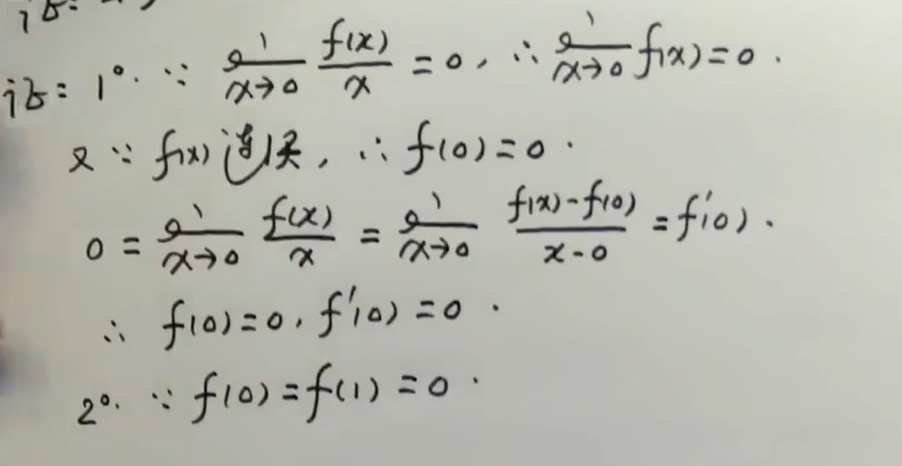 证: 1°. ∵ lim x→0 f(x)/x = 0, ∴ lim x→0 f(x) = 0.
又 ∵ f(x) 连续, ∴ f(0) = 0.
0 = lim x→0 f(x)/x = lim x→0 (f(x)-f(0))/(x-0) = f'(0).
∴ f(0) = 0, f'(0) = 0.
2°. ∵ f(0) = f(1) = 0.